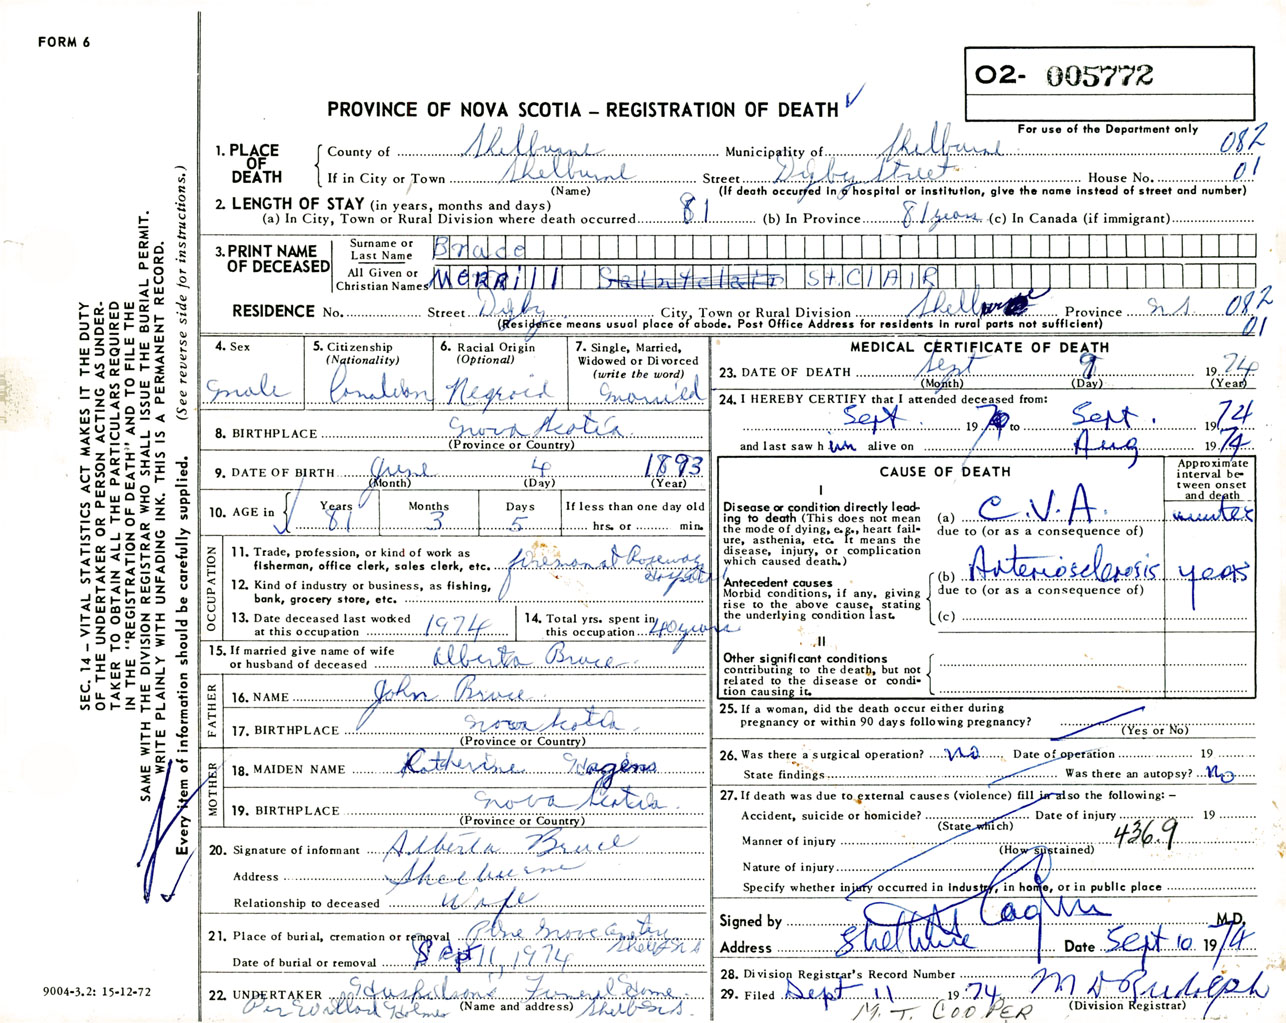 FORM 6
O2- 005772
PROVINCE OF NOVA SCOTIA – REGISTRATION OF DEATH
For use of the Department only
082
01
1. PLACE OF DEATH
County of Shelburne Municipality of Shelburne
If in City or Town Shelburne Street Digby Street House No.
(Name) (If death occurred in a hospital or institution, give the name instead of street and number)
2. LENGTH OF STAY (in years, months and days)
(a) In City, Town or Rural Division where death occurred 81 (b) In Province 81 years (c) In Canada (if immigrant)
3. PRINT NAME OF DECEASED
Surname or Last Name Bruce
All Given or Christian Names MERRill St. ClAIR
RESIDENCE No. Street Digby City, Town or Rural Division Shelburne Province N.S. 082
01
(Residence means usual place of abode. Post Office Address for residents in rural parts not sufficient)
4. Sex
male
5. Citizenship (Nationality)
Canadian
6. Racial Origin (Optional)
Negroid
7. Single, Married, Widowed or Divorced (write the word)
Married
8. BIRTHPLACE Nova Scotia
(Province or Country)
9. DATE OF BIRTH June 4 1893
(Month) (Day) (Year)
10. AGE in Years 81 Months 3 Days 5 If less than one day old
hrs. or min.
OCCUPATION
11. Trade, profession, or kind of work as fisherman, office clerk, sales clerk, etc. fireman at Roseway Hospital
12. Kind of industry or business, as fishing, bank, grocery store, etc.
13. Date deceased last worked at this occupation 1974
14. Total yrs. spent in this occupation 40 years
15. If married give name of wife or husband of deceased Alberta Bruce
FATHER
16. NAME John Bruce
17. BIRTHPLACE Nova Scotia
(Province or Country)
MOTHER
18. MAIDEN NAME Katherine Hagens
19. BIRTHPLACE Nova Scotia
(Province or Country)
20. Signature of informant Alberta Bruce
Address Shelburne
Relationship to deceased Wife
21. Place of burial, cremation or removal Pine Grove Cemetery Shelb. N.S
Date of burial or removal Sept 11, 1974
22. UNDERTAKER Funeral Home
(Name and address) Shelb. N.S.
Per Willard Holmes
MEDICAL CERTIFICATE OF DEATH
23. DATE OF DEATH Sept 9 1974
(Month) (Day) (Year)
24. I HEREBY CERTIFY that I attended deceased from:
Sept 19 70 to Sept. 1974
and last saw h im alive on Aug 1974
CAUSE OF DEATH
Approximate interval between onset and death
I
Disease or condition directly leading to death (This does not mean the mode of dying, e.g., heart failure, asthenia, etc. It means the disease, injury, or complication which caused death.)
(a) C.V.A. minutes
due to (or as a consequence of)
Antecedent causes
Morbid conditions, if any, giving rise to the above cause, stating the underlying condition last.
(b) Arteriosclerosis years
due to (or as a consequence of)
(c)
II
Other significant conditions contributing to the death, but not related to the disease or condition causing it.
25. If a woman, did the death occur either during pregnancy or within 90 days following pregnancy?
(Yes or No)
26. Was there a surgical operation? No Date of operation 19
State findings Was there an autopsy? No
27. If death was due to external causes (violence) fill in also the following: –
Accident, suicide or homicide? Date of injury 19
(State which)
Manner of injury 436.9
(How sustained)
Nature of injury
Specify whether injury occurred in Industry, in home, or in public place
Signed by M.D.
Address Shelburne Date Sept 10 1974
28. Division Registrar's Record Number
29. Filed Sept 11 1974 M D Rudolph
(Division Registrar)
M. T. COOPER
SEC. 14 – VITAL STATISTICS ACT MAKES IT THE DUTY
OF THE UNDERTAKER OR PERSON ACTING AS UNDER-
TAKER TO OBTAIN ALL THE PARTICULARS REQUIRED
IN THE "REGISTRATION OF DEATH" AND TO FILE THE
SAME WITH THE DIVISION REGISTRAR WHO SHALL ISSUE THE BURIAL PERMIT.
WRITE PLAINLY WITH UNFADING INK. THIS IS A PERMANENT RECORD.
Every item of information should be carefully supplied. (See reverse side for instructions.)
9004-3.2: 15-12-72